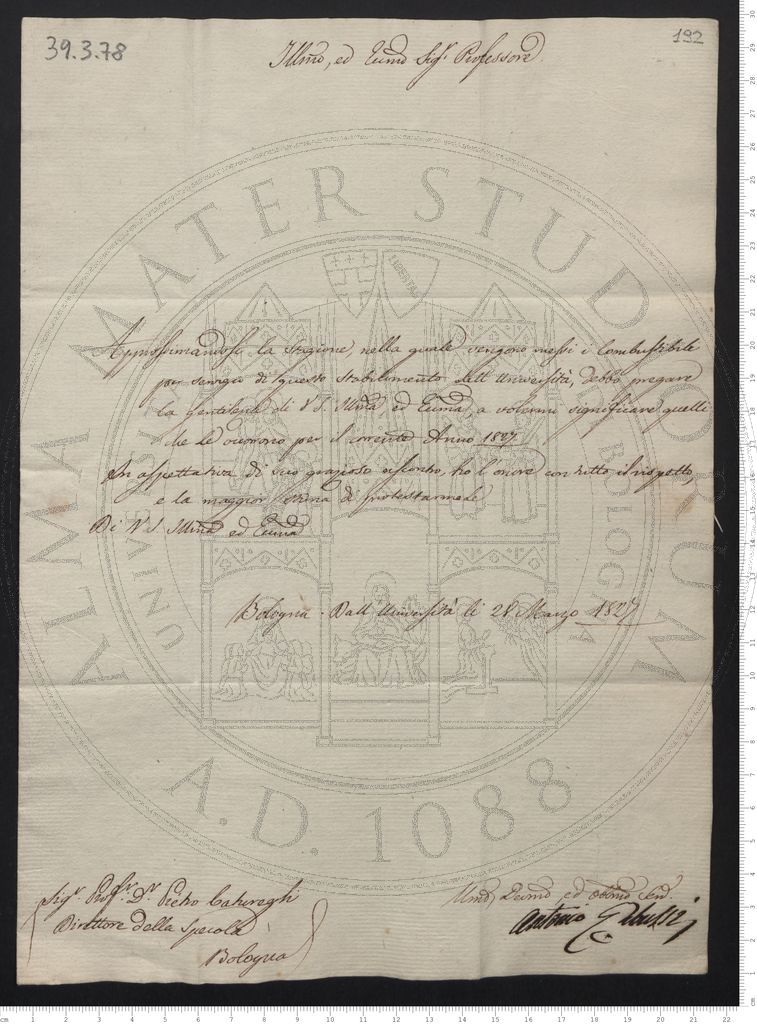 39.3.78
192
Illmo, ed Ecmo Sigr Professore
Approssimandosi la Stagione, nella quale vengono messi i Combustibile
per servigio di questo Stabilimento dell'Università, debbo pregare
la gentilezza di V.S. Illma, ed Ecma, a volermi significare quelli
che Le occorono per il corrente Anno 1827.
In aspettativa di suo grazioso riscontro, ho l'onore con tutto il rispetto,
e la maggior stima di protestarmele
Di V.S. Illma ed Ecma
Bologna - Dall'Università li 28 Marzo 1827
Sigr Profr Dr Pietro Caturegli
Direttore della Specola
Bologna
Umo Devmo ed Obbmo Serv.
Antonio
ALMA MATER STUDIORUM
A.D. 1088
LIBERTAS